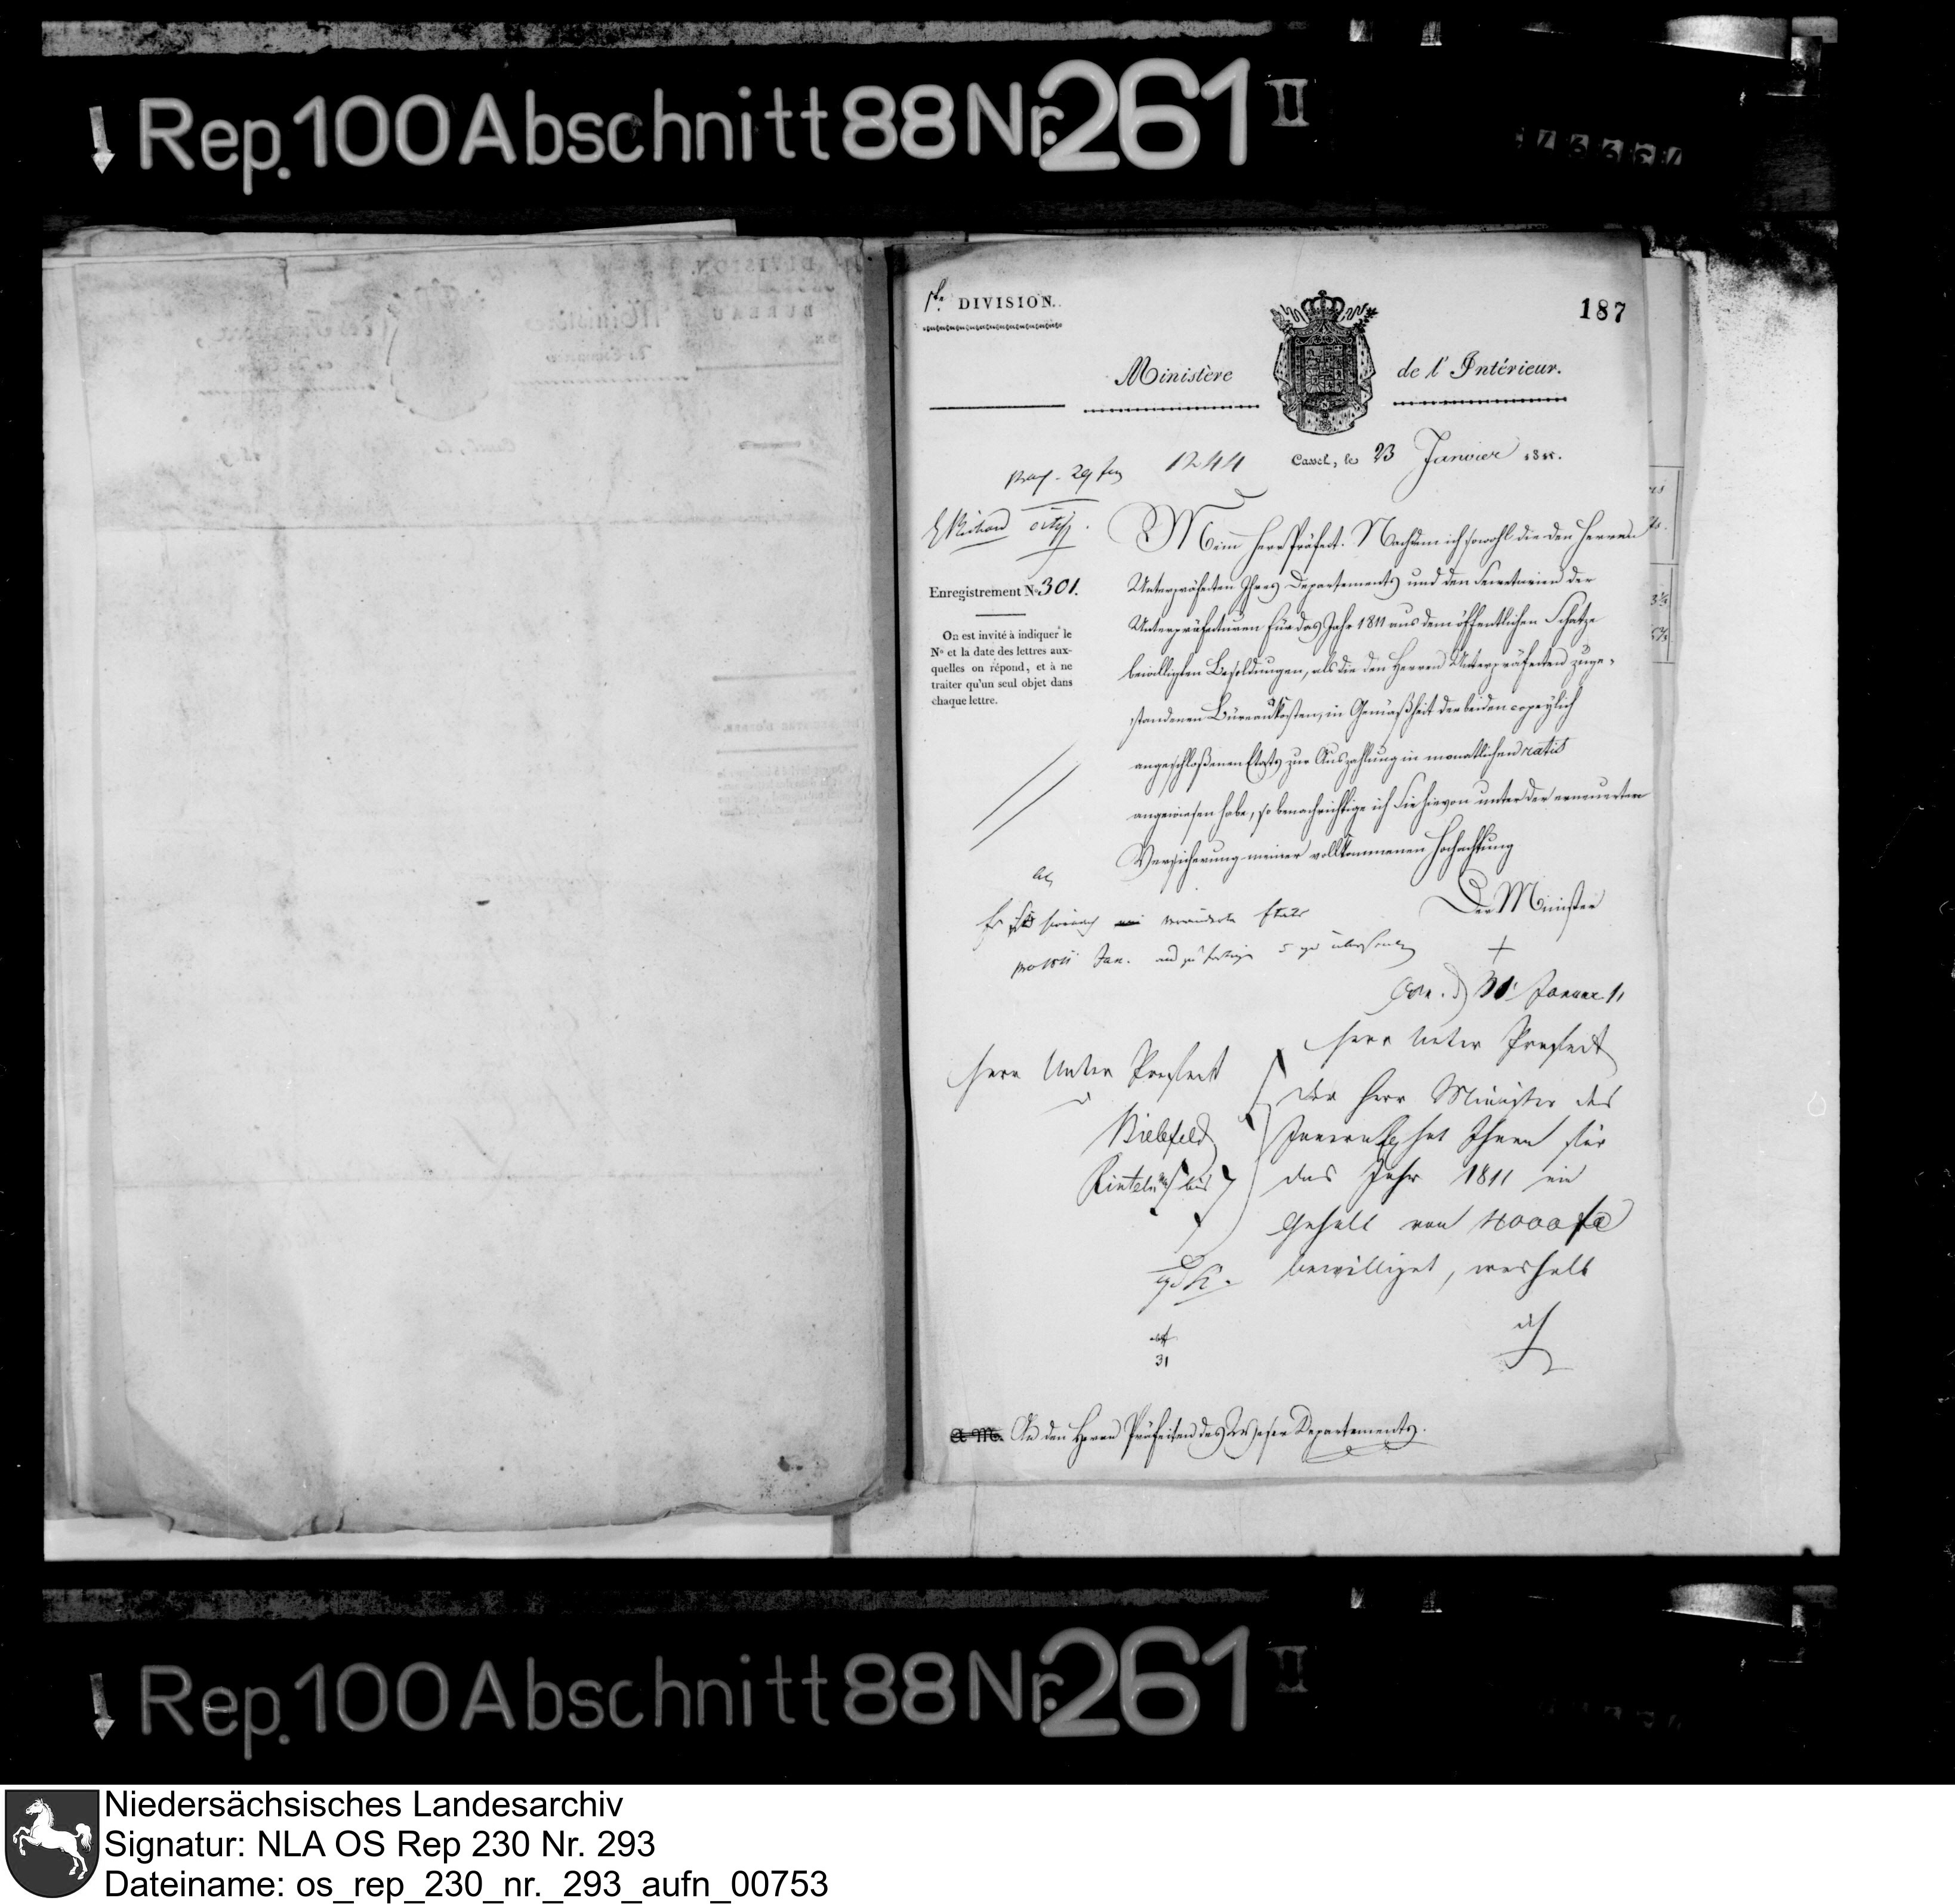 Rep. 100 Abschnitt 88 Nr. 261 II
1te DIVISION.
187
Ministère de l'Intérieur.
Cassel, le 23 Janvier 1811.
1244
29 Jan
Enregistrement No 301.
On est invité à indiquer le
No et la date des lettres aux-
quelles on répond, et à ne
traiter qu'un seul objet dans
chaque lettre.
Mein Herr Präfect. Nachdem ich sowohl die den Herren
Unterpräfecten Ihres Departements und den Secretarien der
Unterpräfecturen für das Jahr 1811 aus dem öffentlichen Schatze
bewilligten Besoldungen, als die den Herren Unterpräfecten zuge-
standenen Büreaukosten, in Gemäßheit der beiden copeylich
angeschloßenen Etats zur Auszahlung in monatlichen ratis
angewiesen habe, so benachrichtige ich Sie hievon unter der erneuerten
Versicherung meiner vollkommenen Hochachtung
Der Minister
veränderte Etats
31 Januar 11
Herr Unter Praefect
Herr Unter Praefect
Bielefeld
Rinteln
Der Herr Minister des
Innern hat Ihnen für
das Jahr 1811 ein
Gehalt von 4000 fc
bewilliget, weshalb
31
An den Herrn Präfecten des Weser Departements.
Rep. 100 Abschnitt 88 Nr. 261 II
Niedersächsisches Landesarchiv
Signatur: NLA OS Rep 230 Nr. 293
Dateiname: os_rep_230_nr._293_aufn_00753